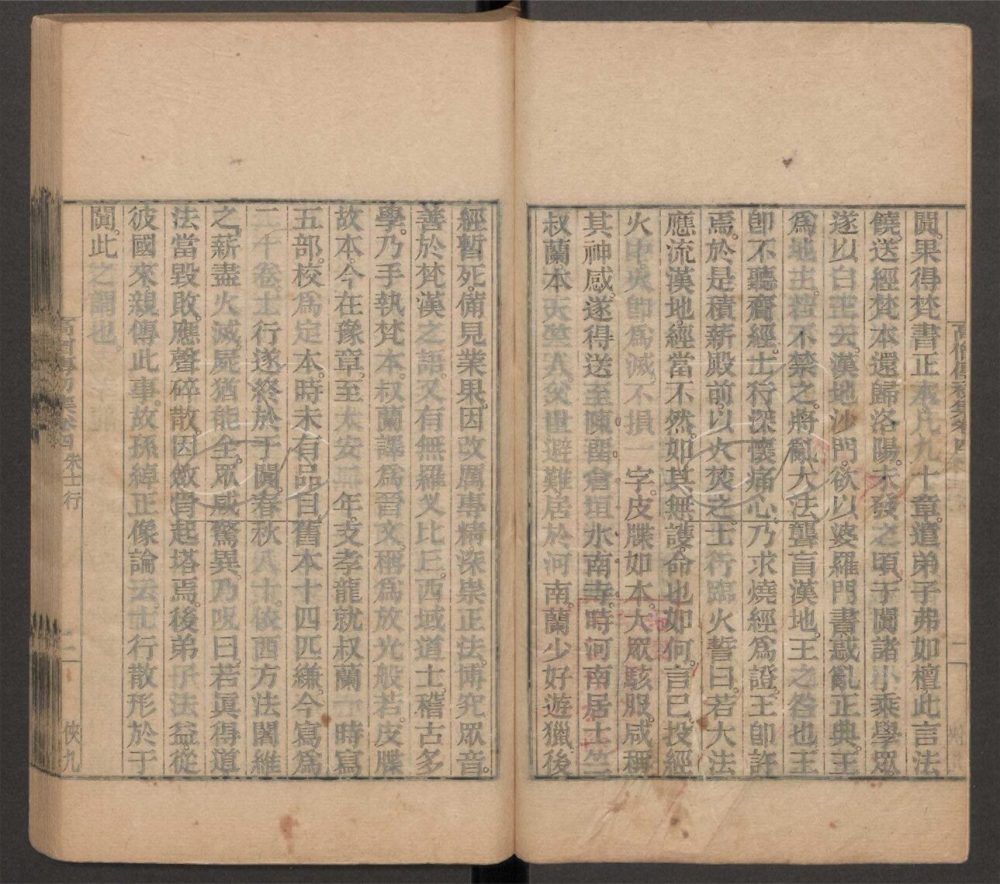 闐果得梵書正本凡九十章遣弟子弗如檀此言法
饒送經梵本還歸洛陽未發之頃于闐諸小乘學眾
遂以白王云漢地沙門欲以婆羅門書惑亂正典王
爲地主若不禁之將斷大法聾盲漢地王之咎也王
卽不聽齎經士行深懷痛心乃求燒經爲證王卽許
焉於是積薪殿前以火焚之士行臨火誓曰若大法
應流漢地經當不然如其無護命也如何言已投經
火中火卽爲滅不損一字皮牒如本大眾駭服咸稱
其神感遂得送至陳留倉垣水南寺時河南居士竺
叔蘭本天竺人父世避難居於河南蘭少好遊獵後
經暫死備見業果因改厲專精深崇正法博究眾音
善於梵漢之語又有無羅叉比丘西域道士稽古多
學乃手執梵本叔蘭譯爲晉文稱爲放光般若皮牒
故本今在豫章至太安二年支孝龍就叔蘭一時寫
五部校爲定本時未有品目舊本十四匹縑今寫爲
二十卷士行遂終於于闐春秋八十依西方法闍維
之薪盡火滅屍猶能全眾咸驚異乃呪曰若眞得道
法當毀敗應聲碎散因斂骨起塔焉後弟子法益從
彼國來親傳此事故孫綽正像論云士行散形於于
闐此之謂也
高僧傳初集卷四 朱士行
二
俠九